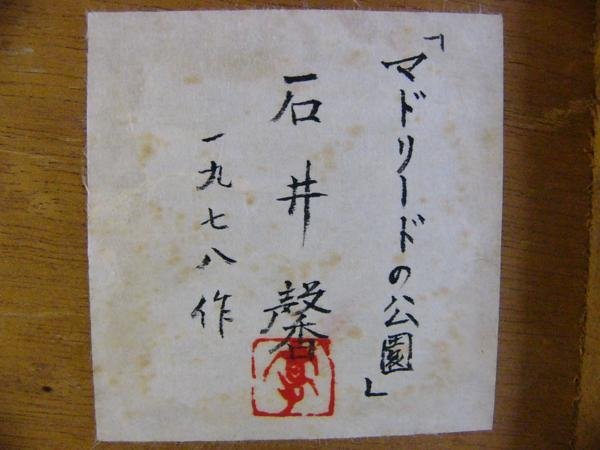 「マドリードの公園」
石井馨
一九七八作